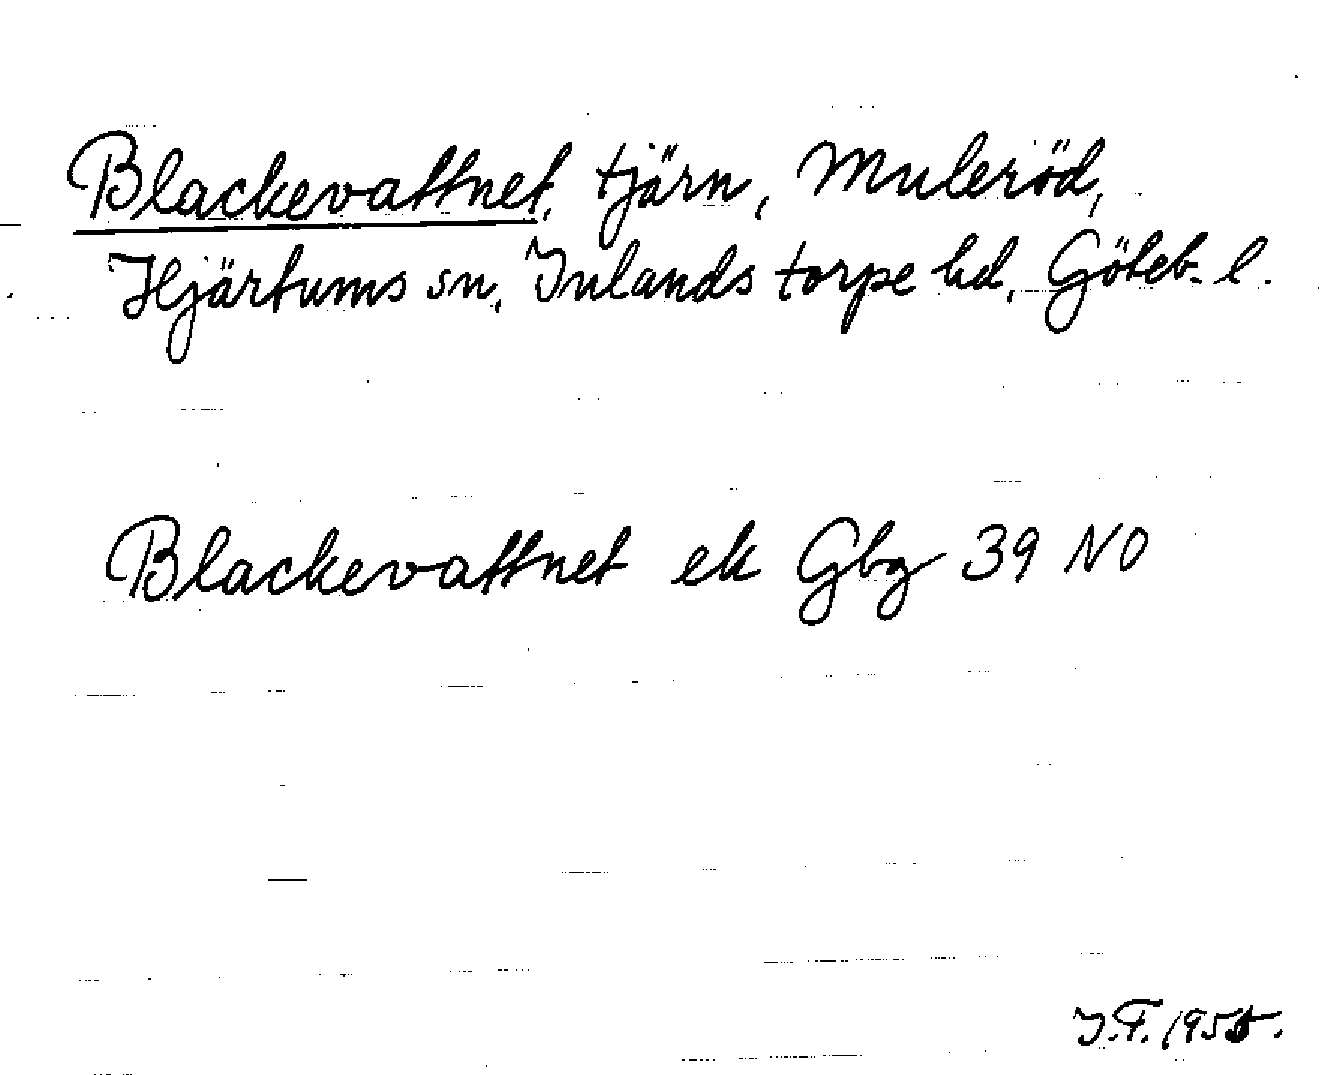 Blackevattnet, tjärn, Muleröd,
Hjärtums sn, Inlands torpe hd, Göteb. l.
Blackevattnet ek Gbg 39 NO
J.F. 1955.